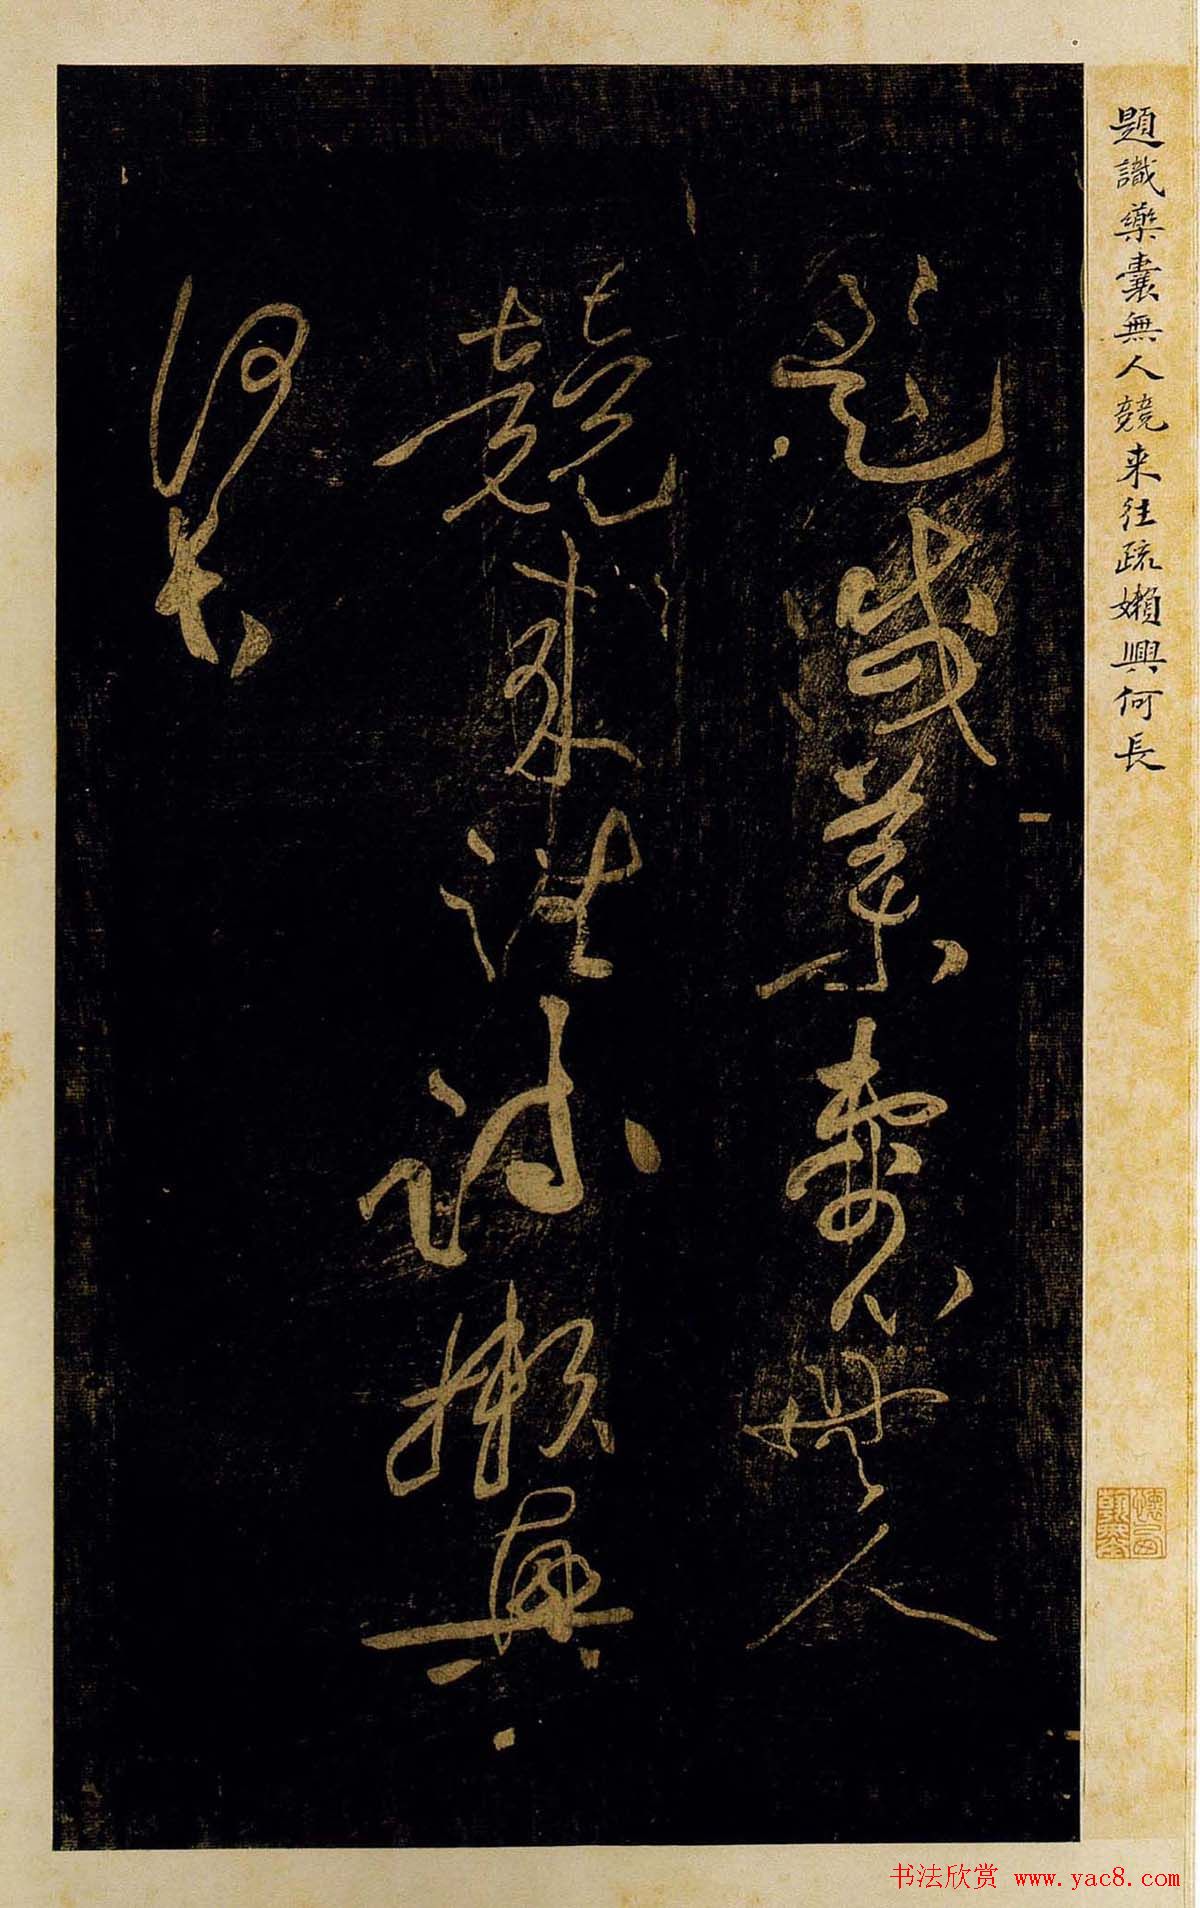 題識藥囊無人競来往疏嬾興何長
題識藥囊無人
競来往疎懶興
何長
书法欣赏 www.yac8.com